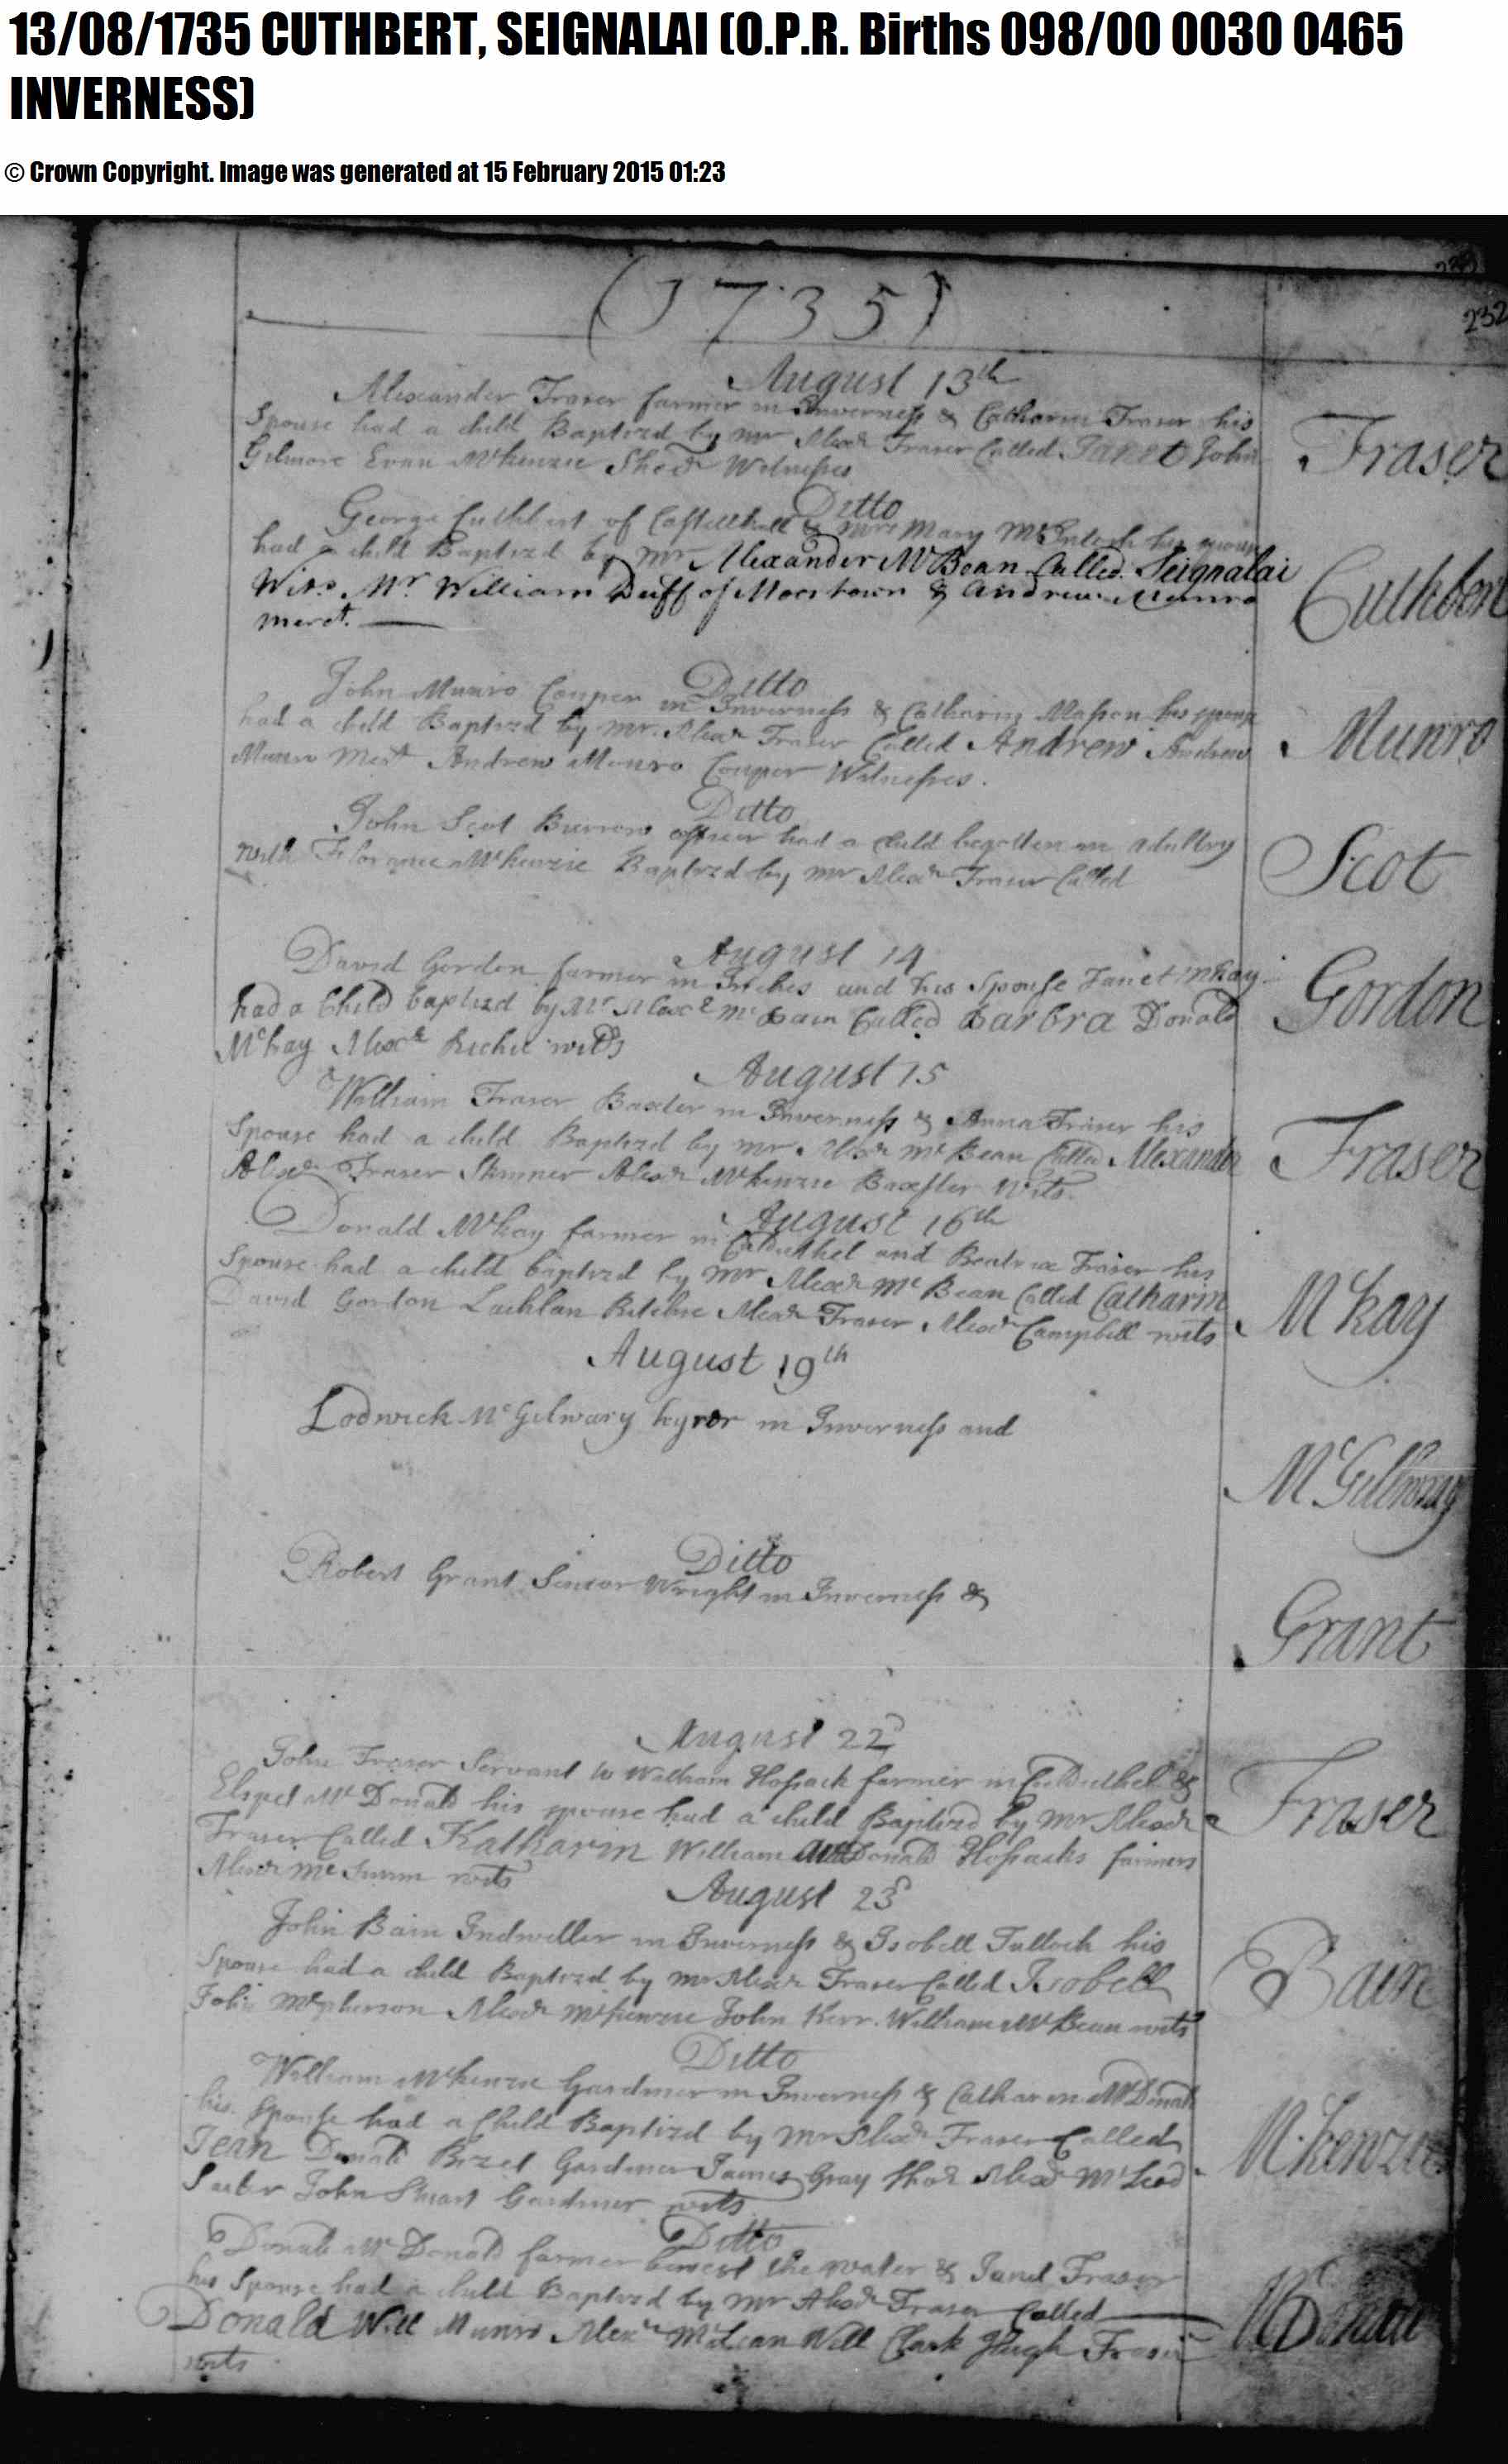 13/08/1735 CUTHBERT, SEIGNALAI (O.P.R. Births 098/00 0030 0465
INVERNESS)
© Crown Copyright. Image was generated at 15 February 2015 01:23
232
(1735)
August 13th
Alexander Fraser farmer in Inverness & Catharin Fraser his
Spouse had a child Baptizd by mr Alexr Fraser Called Janet John
Gilmore Evan Mckenzie Witnesses
Fraser
Ditto
George Cuthbert of Castlehill & Mrs Mary McIntosh his spouse
had a child Baptizd by mr Alexander McBean Called Seignalai
Wits. Mr. William Duff of & Andrew Munro
merct.
Cuthbert
Ditto
John Munro Couper in Inverness & Catharin his spouse
had a child Baptizd by mr Alexr Fraser Called Andrew Andrew
Munro Mert Andrew Munro Couper Witnesses.
Munro
Ditto
John Scot officer had a child begotten in adultery
with Florance Mckenzie Baptizd by mr Alexr Fraser Called
Scot
August 14
David Gordon farmer in Inches and his Spouse Janet Mkay
had a Child baptizd by Mr Alexr McBain Called Barbra Donald
Mckay Alexr wits
Gordon
August 15
William Fraser Baxter in Inverness & Anna Fraser his
Spouse had a child Baptizd by mr Alexr McBean Called Alexander
Alexr Fraser Skinner Alexr Mckenzie Baxster wits.
Fraser
August 16th
Donald Mckay farmer in Culduthel and Beatrix Fraser his
Spouse had a child baptizd by mr Alexr McBean Called Catharin
David Gordon Lachlan Ritchie Alexr Fraser Alexr Campbell wits
Mkay
August 19th
Lodwick McGilwary in Inverness and
McGillwray
Ditto
Robert Grant Senior Wright in Inverness &
Grant
August 22d
John Fraser Servant to William Hossack farmer in Culduthel &
Elspet McDonald his spouse had a child Baptizd by mr Alexr
Fraser Called Katharin William Donald Hossacks farmers
Alexr wits
Fraser
August 23d
John Bain Indweller in Inverness & Isobell Tulloch his
Spouse had a child Baptizd by mr Alexr Fraser Called Isobell
John Mcpherson Alexr Mckenzie John Kerr William McBean wits
Bain
Ditto
William Mckenzie Gardiner in Inverness & Catharin McDonald
his Spouse had a Child Baptizd by mr Alexr Fraser Called
Jean Donald Gardiner James Gray Alexr McLeod
John Stuart Gardiner wits
Mckenzie
Ditto
Donald McDonald farmer the water & Janet Fraser
his Spouse had a child Baptizd by mr Alexr Fraser Called
Donald Will Munro Alexr McLean Will Clark Hugh Fraser
wits
McDonald